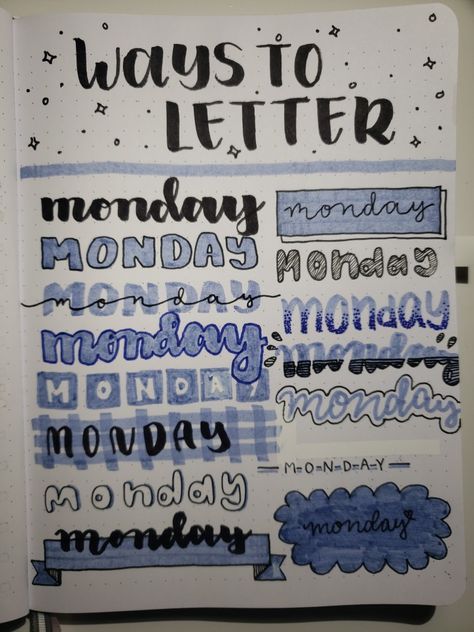 WAYS TO
LETTER
monday
MONDAY
monday
monday
MONDAY
MONDAY
monday
monday
monday
Monday
monday
monday
monday
M-O-N-D-A-Y
monday